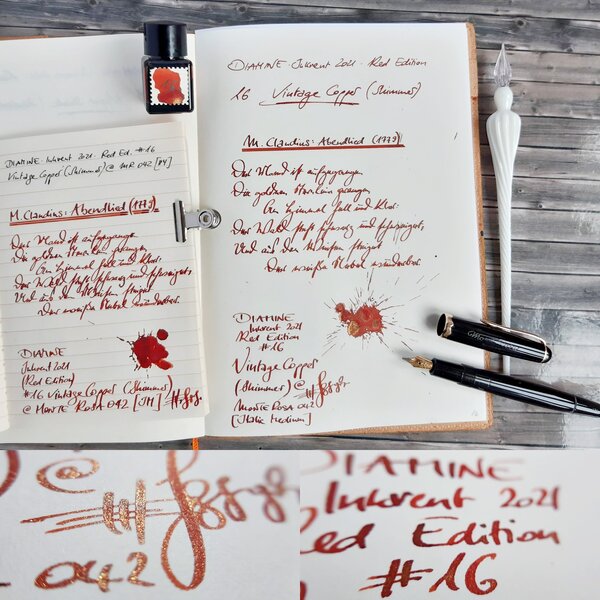 DIAMINE Inkvent 2021 · Red Ed. #16
Vintage Copper (Shimmer) @ MR 042 [M]
M. Claudius: Abendlied (1779)
Der Mond ist aufgegangen
Die goldnen Sternlein prangen
Am Himmel hell und klar.
Der Wald steht schwarz und schweiget,
Und aus den Wiesen steiget
Der weiße Nebel wunderbar.
DIAMINE
Inkvent 2021
(Red Edition)
#16 Vintage Copper (Shimmer)
@ MONTE ROSA 042
DIAMINE Inkvent 2021 · Red Edition
16 Vintage Copper (Shimmer)
M. Claudius: Abendlied (1779)
Der Mond ist aufgegangen
Die goldnen Sternlein prangen
Am Himmel hell und klar.
Der Wald steht schwarz und schweiget,
Und aus den Wiesen steiget
Der weiße Nebel wunderbar.
DIAMINE
Inkvent 2021
Red Edition
#16
Vintage Copper
(Shimmer) @
MONTE ROSA 042
[Italic Medium]
@
042
DIAMINE
Inkvent 2021
Red Edition
#16